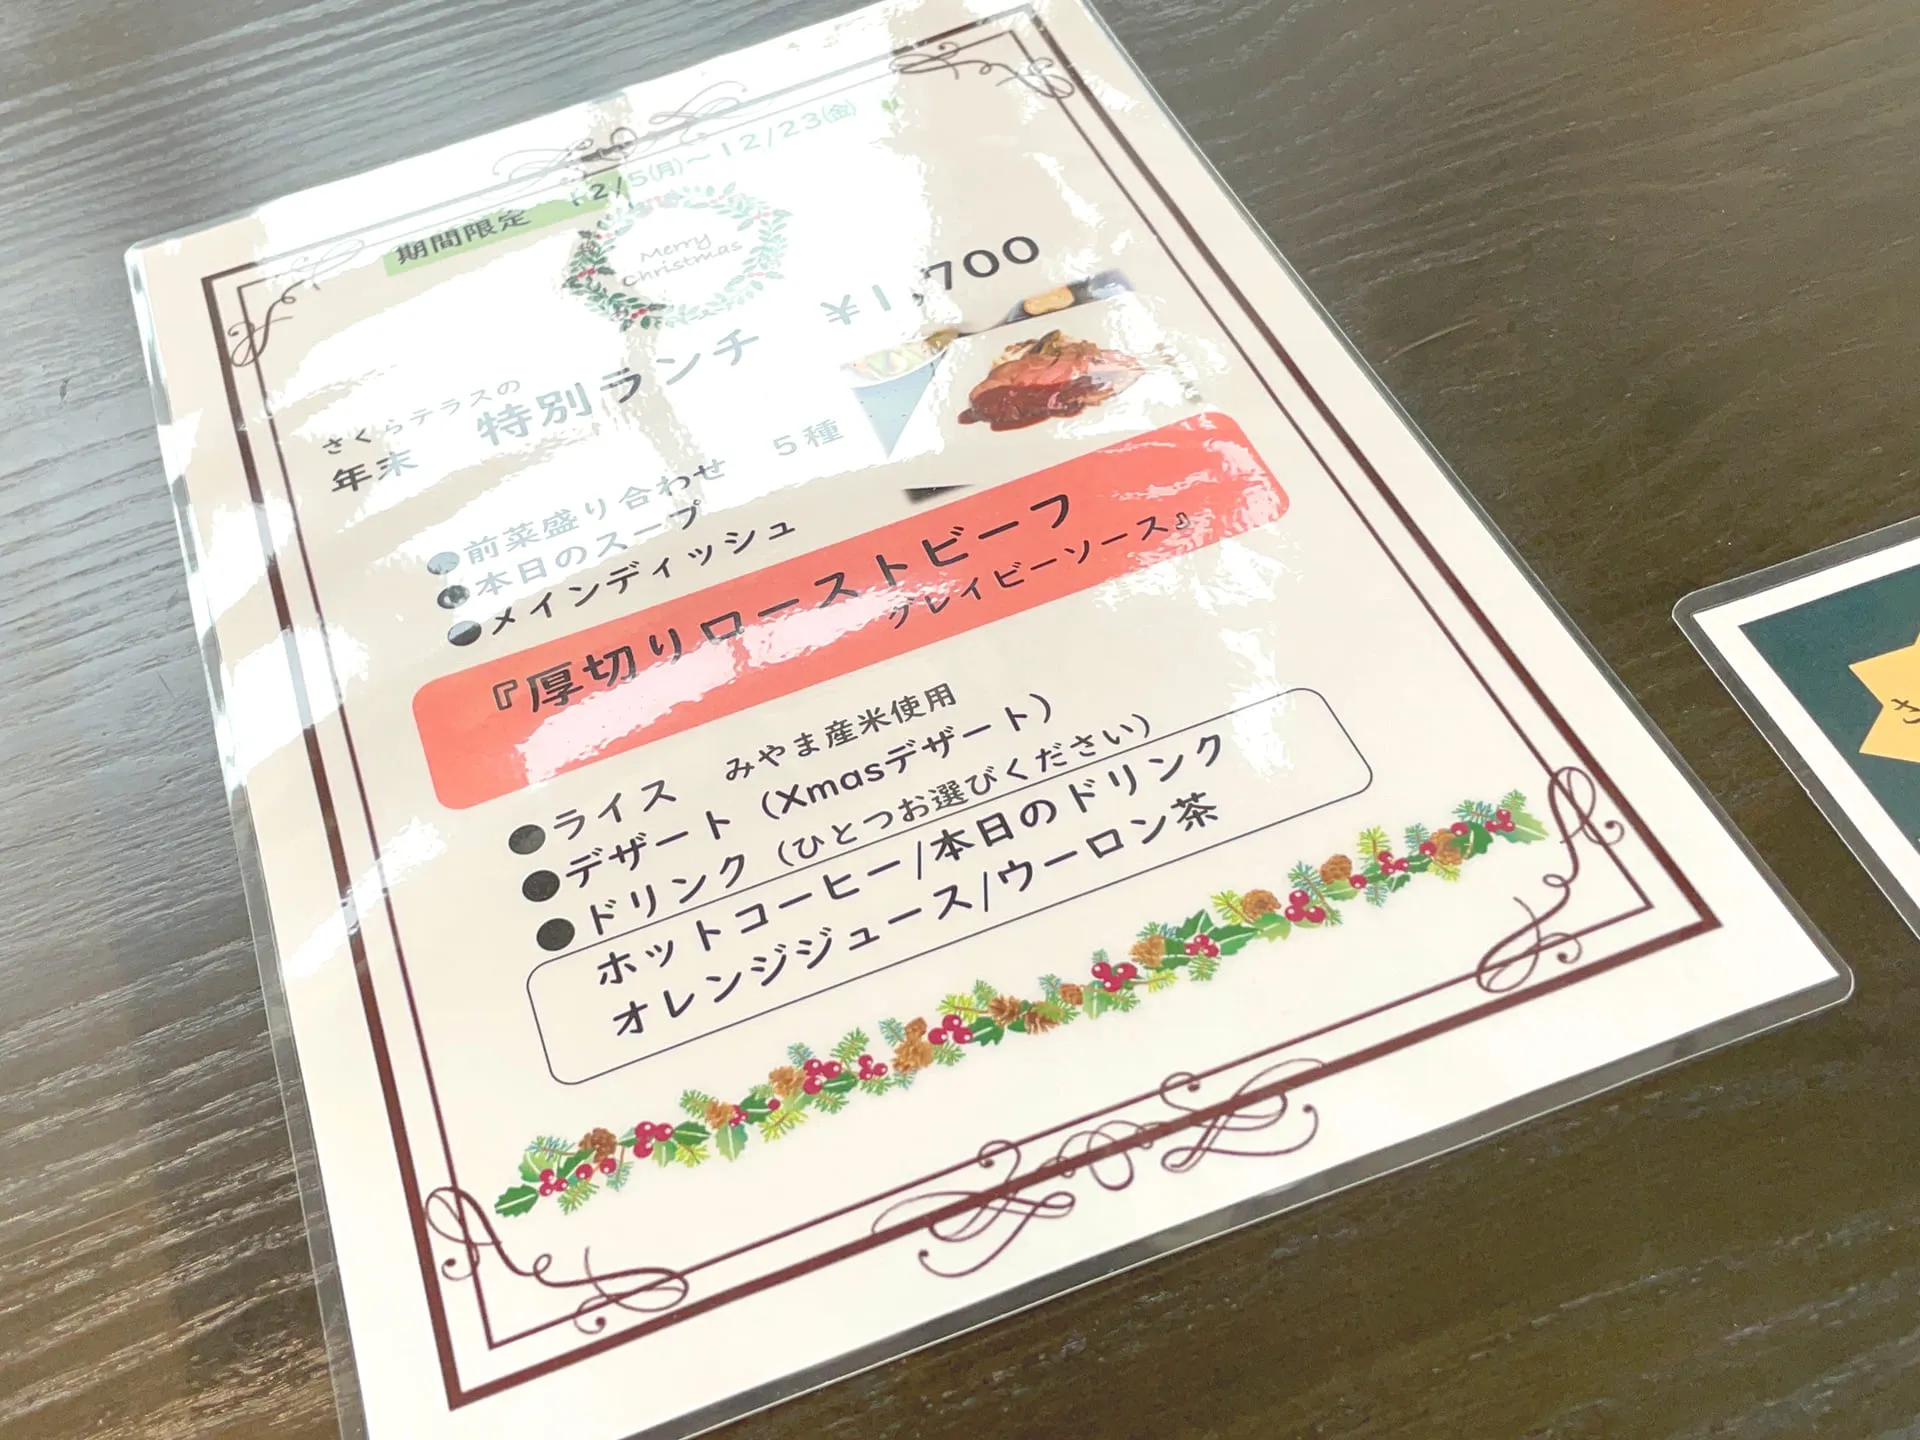 期間限定 12/5(月)～12/23(金)
Merry
Christmas
さくらテラスの
年末 特別ランチ ¥1,700
●前菜盛り合わせ 5種
●本日のスープ
●メインディッシュ
『厚切りローストビーフ
グレイビーソース』
●ライス みやま産米使用
●デザート（Xmasデザート）
●ドリンク（ひとつお選びください）
ホットコーヒー/本日のドリンク
オレンジジュース/ウーロン茶
さ